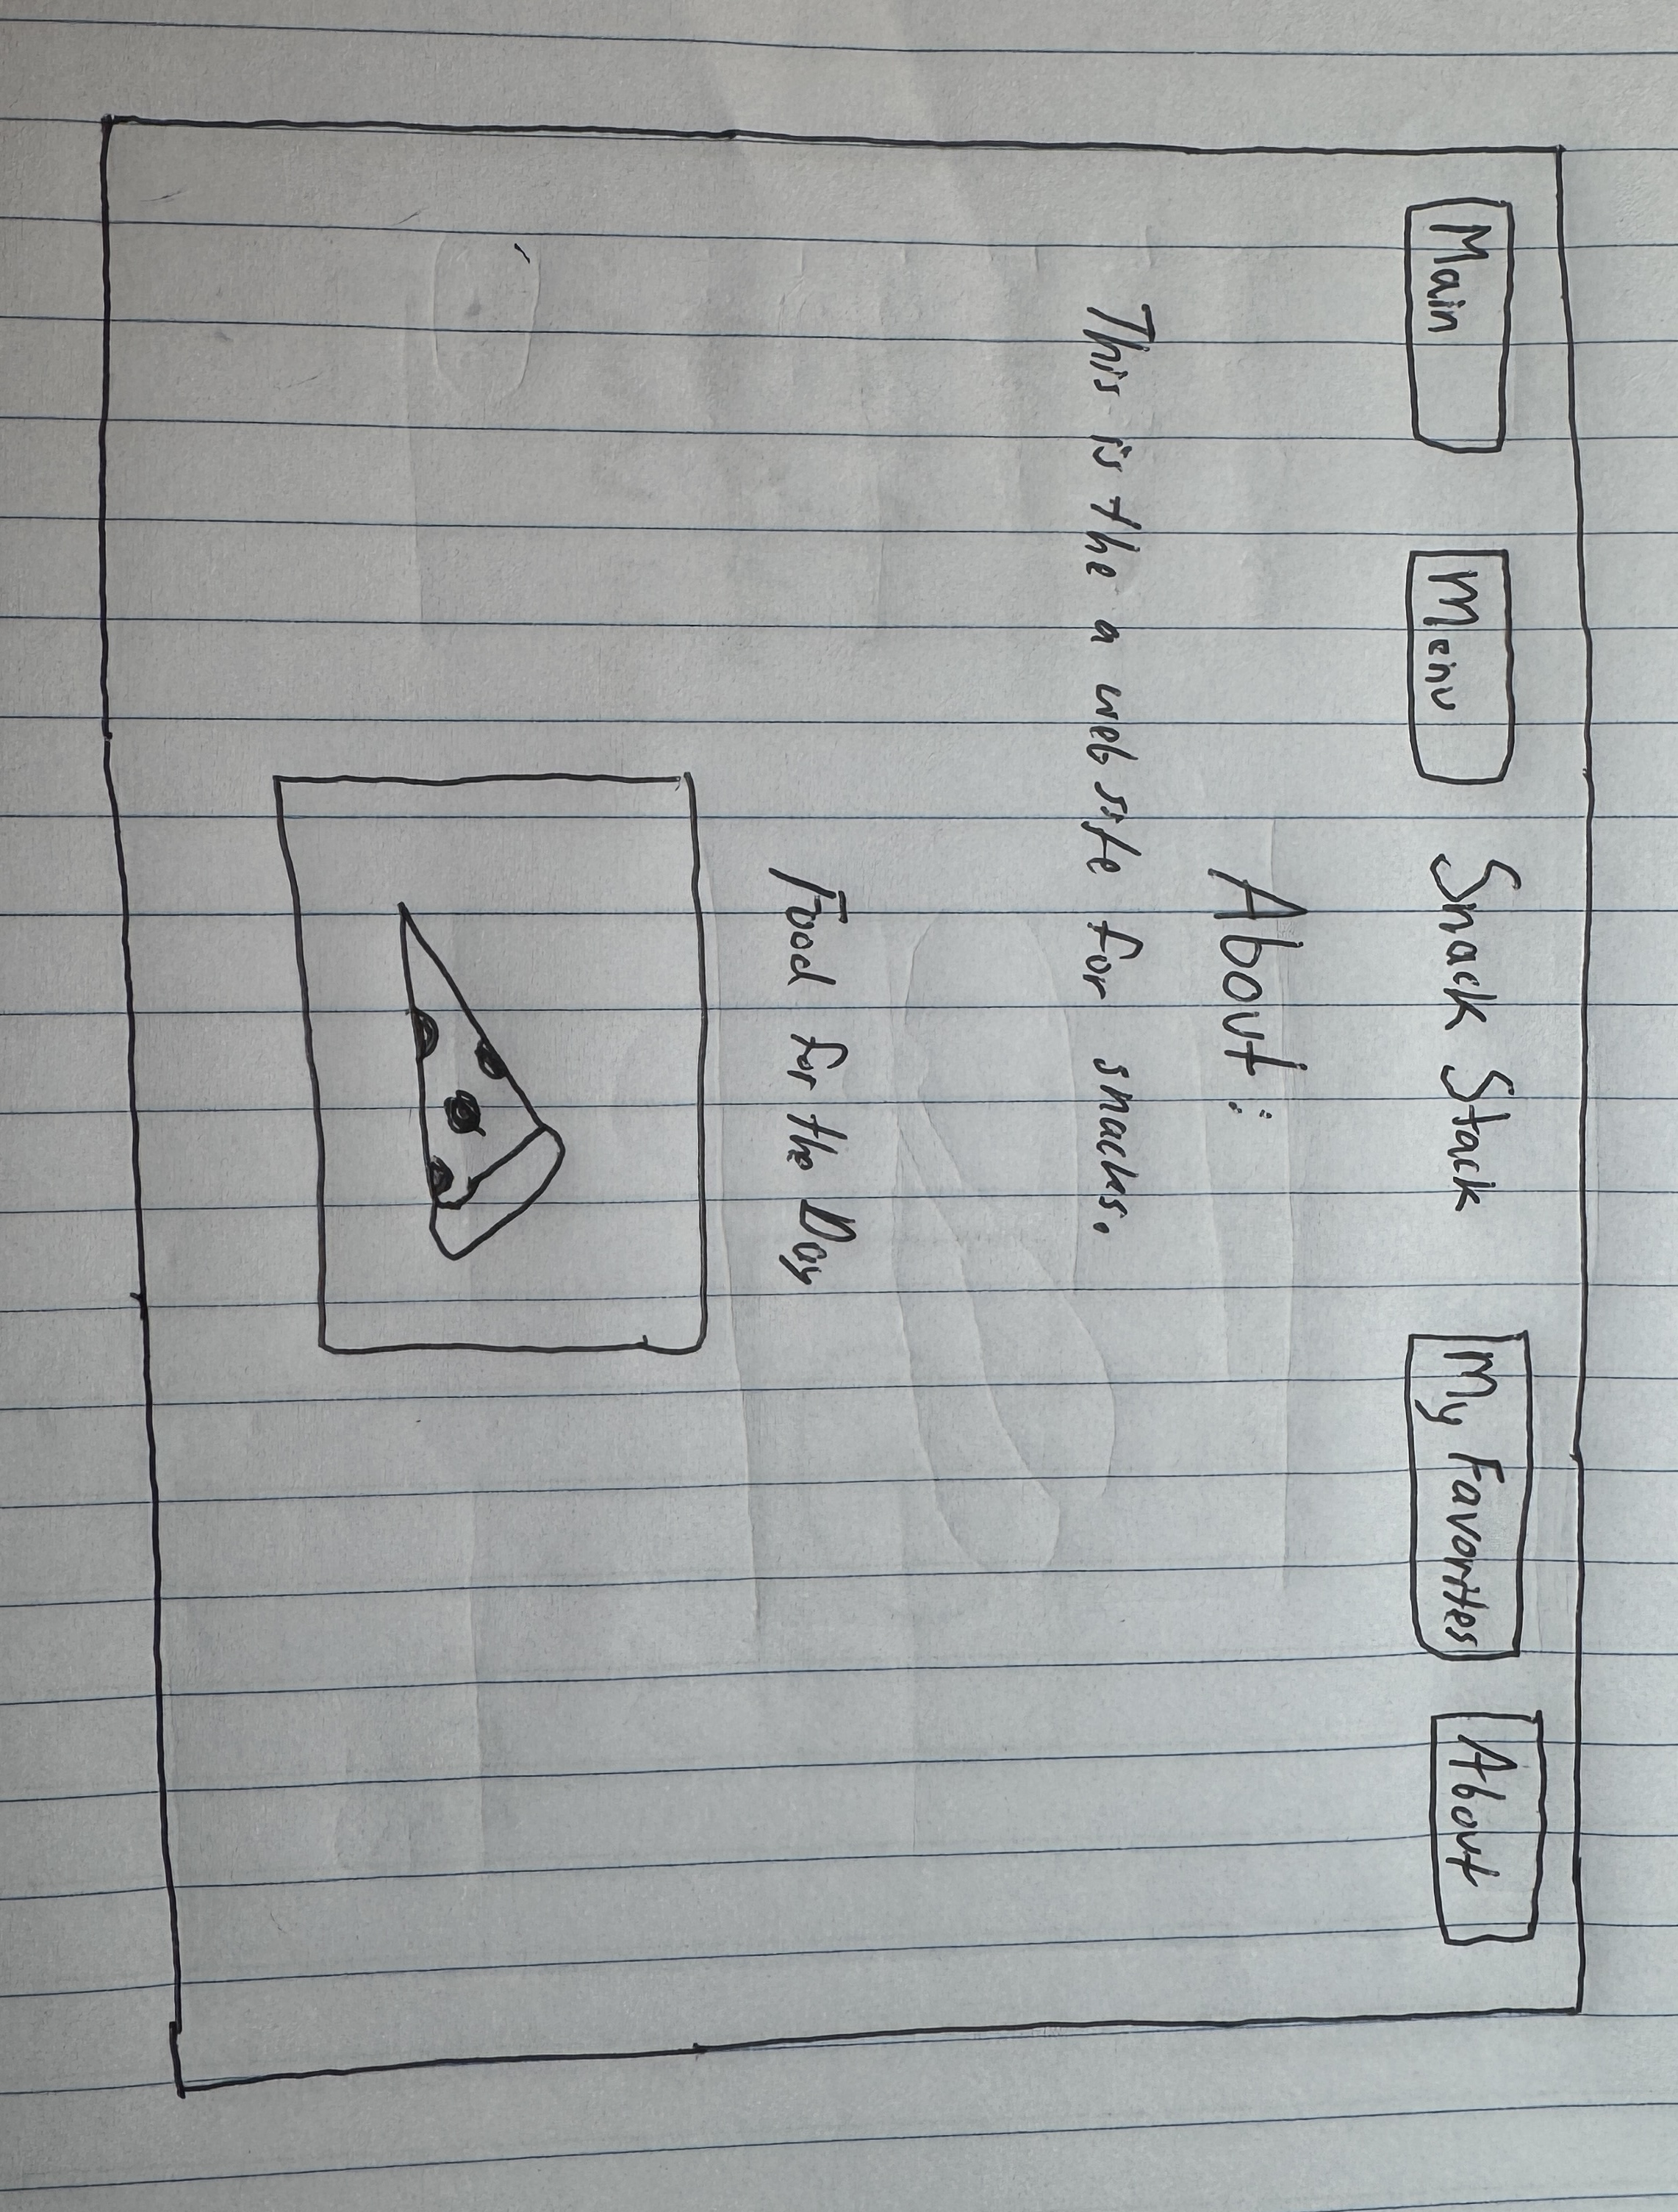 Main
Menu
Snack Stack
My Favorites
About
About:
This is the a website for snacks.
Food for the Day